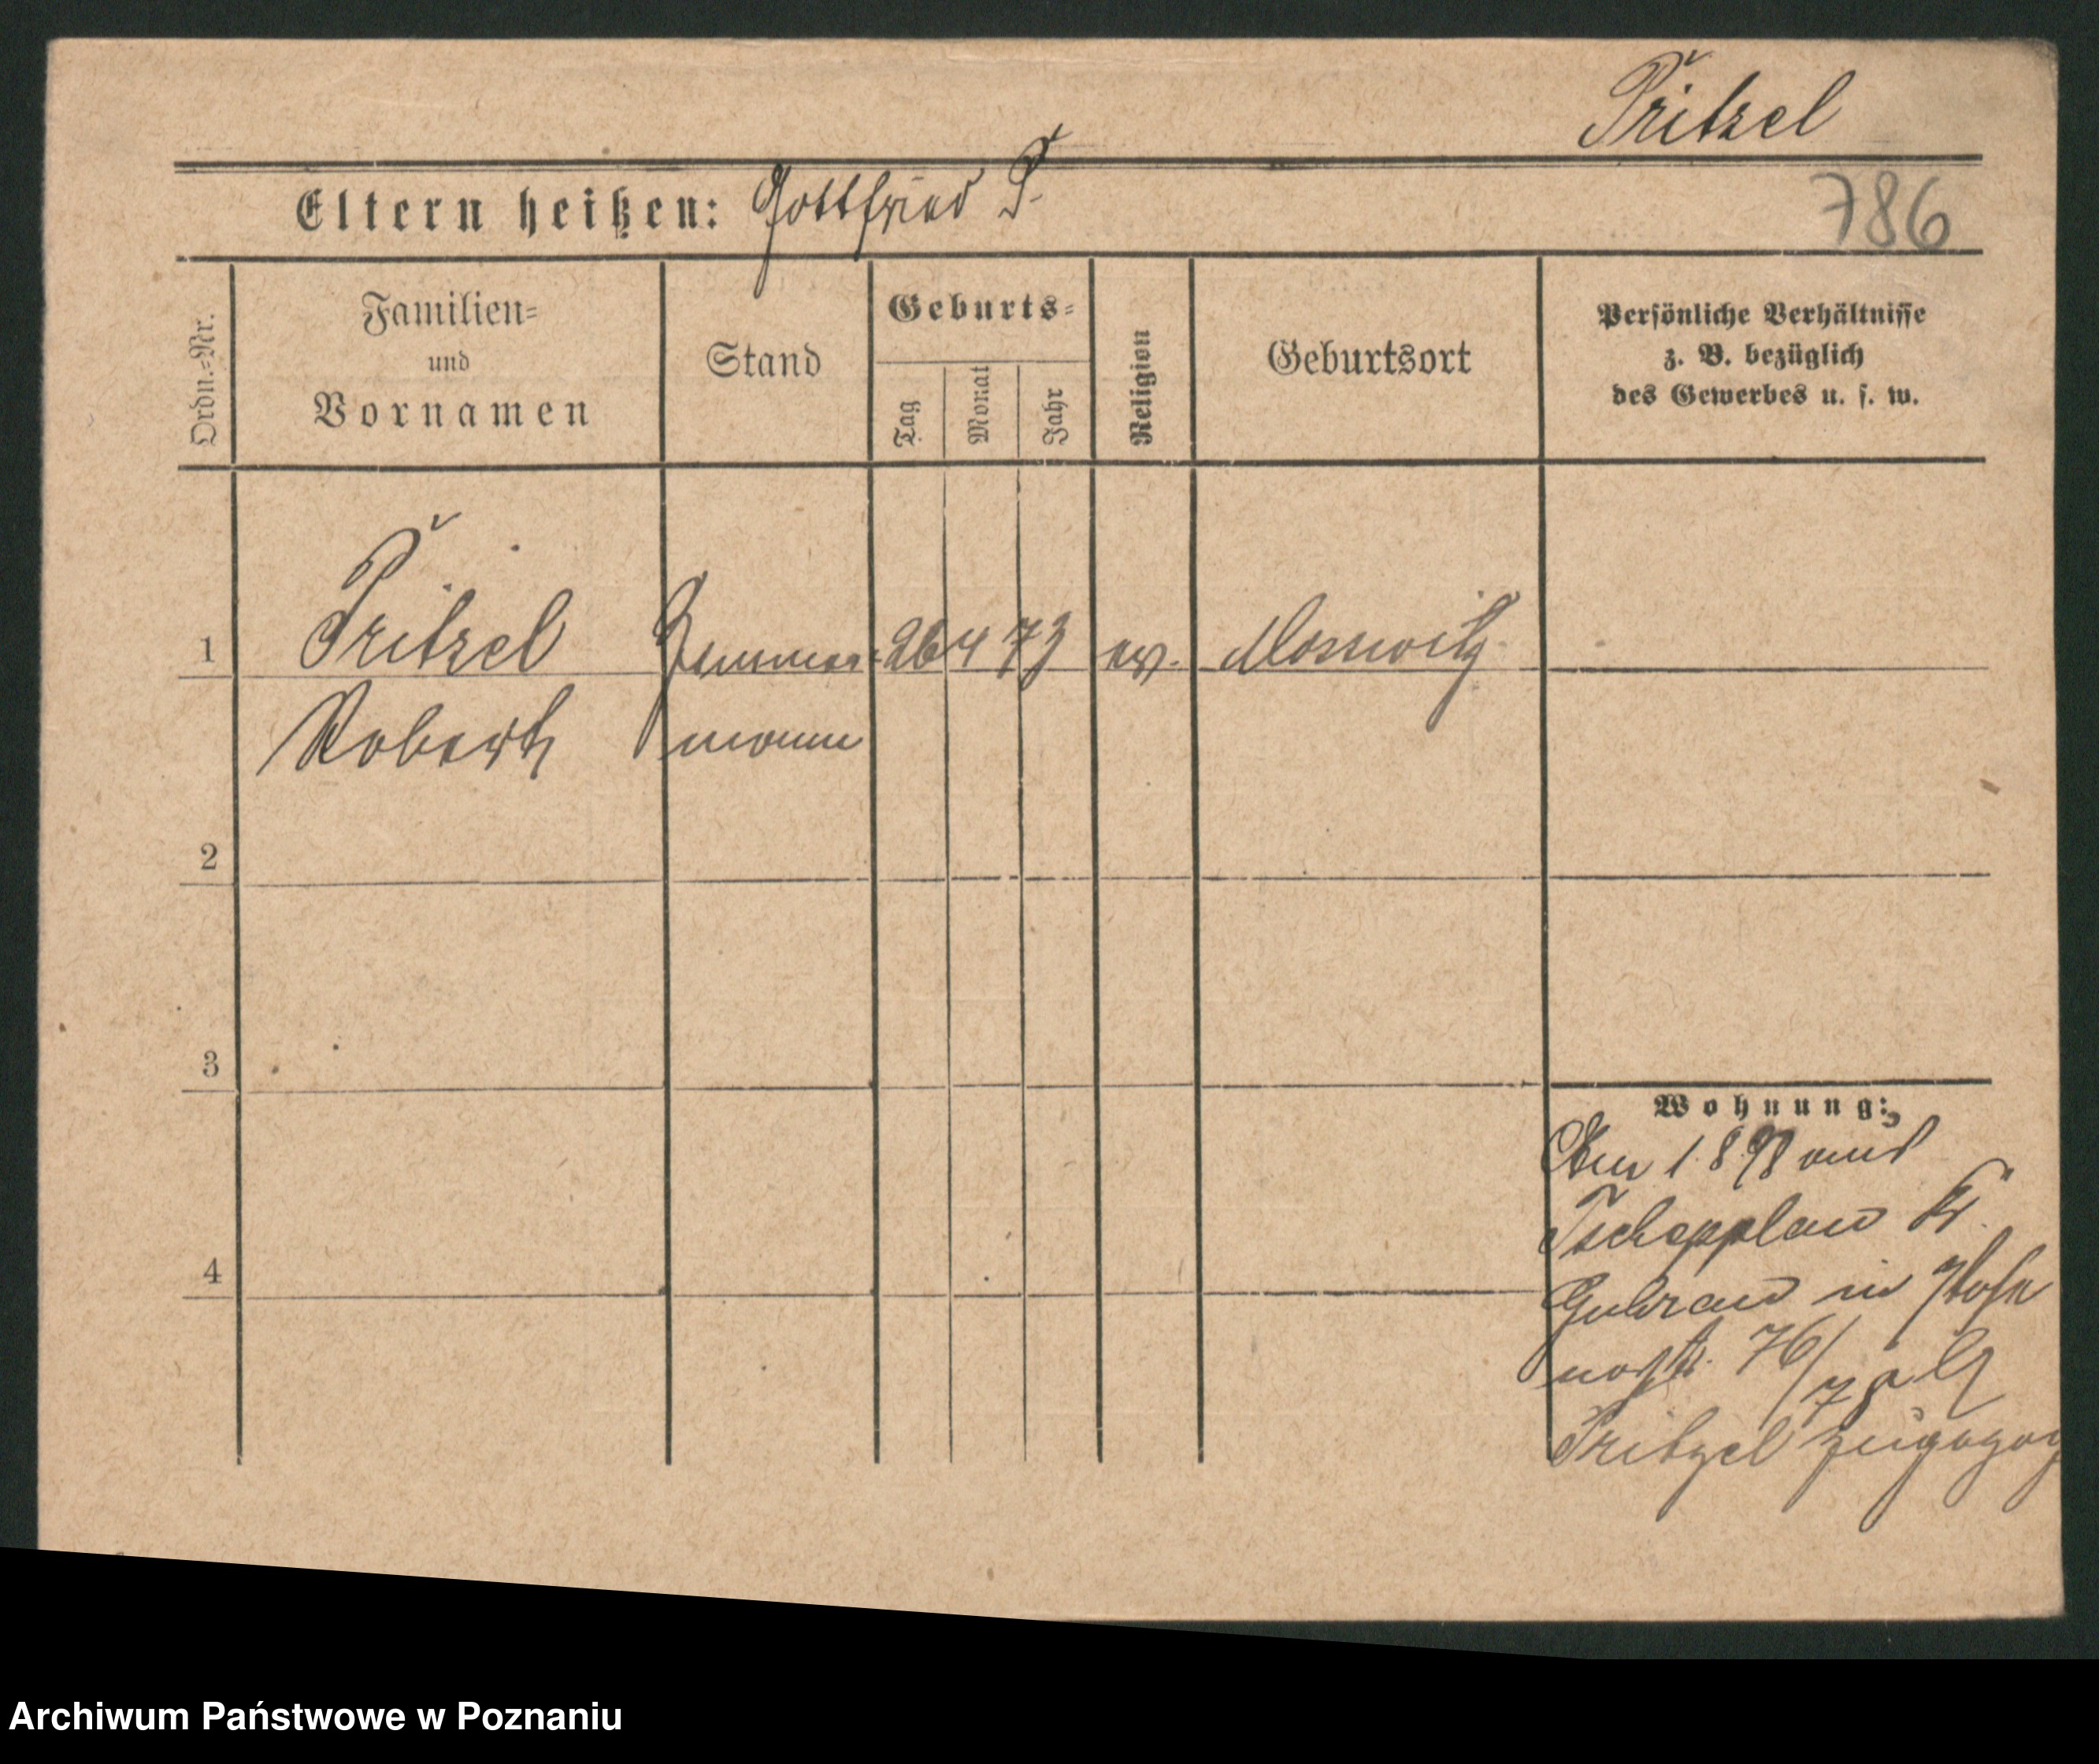 Pritzel
Eltern heißen: Gottfried P.
786
Ordn.=Nr.
Familien=
und
Vornamen
Stand
Geburts=
Tag
Monat
Jahr
Religion
Geburtsort
Persönliche Verhältnisse
z. B. bezüglich
des Gewerbes u. s. w.
1 Pritzel Zimmer= 26 4 73 ev.
Robert mann
2
3
4
Wohnung:
Am 1.8.98 aus
Tscheplau Kr.
Guhrau in
76/78 b/
Pritzel zugezog
Archiwum Państwowe w Poznaniu